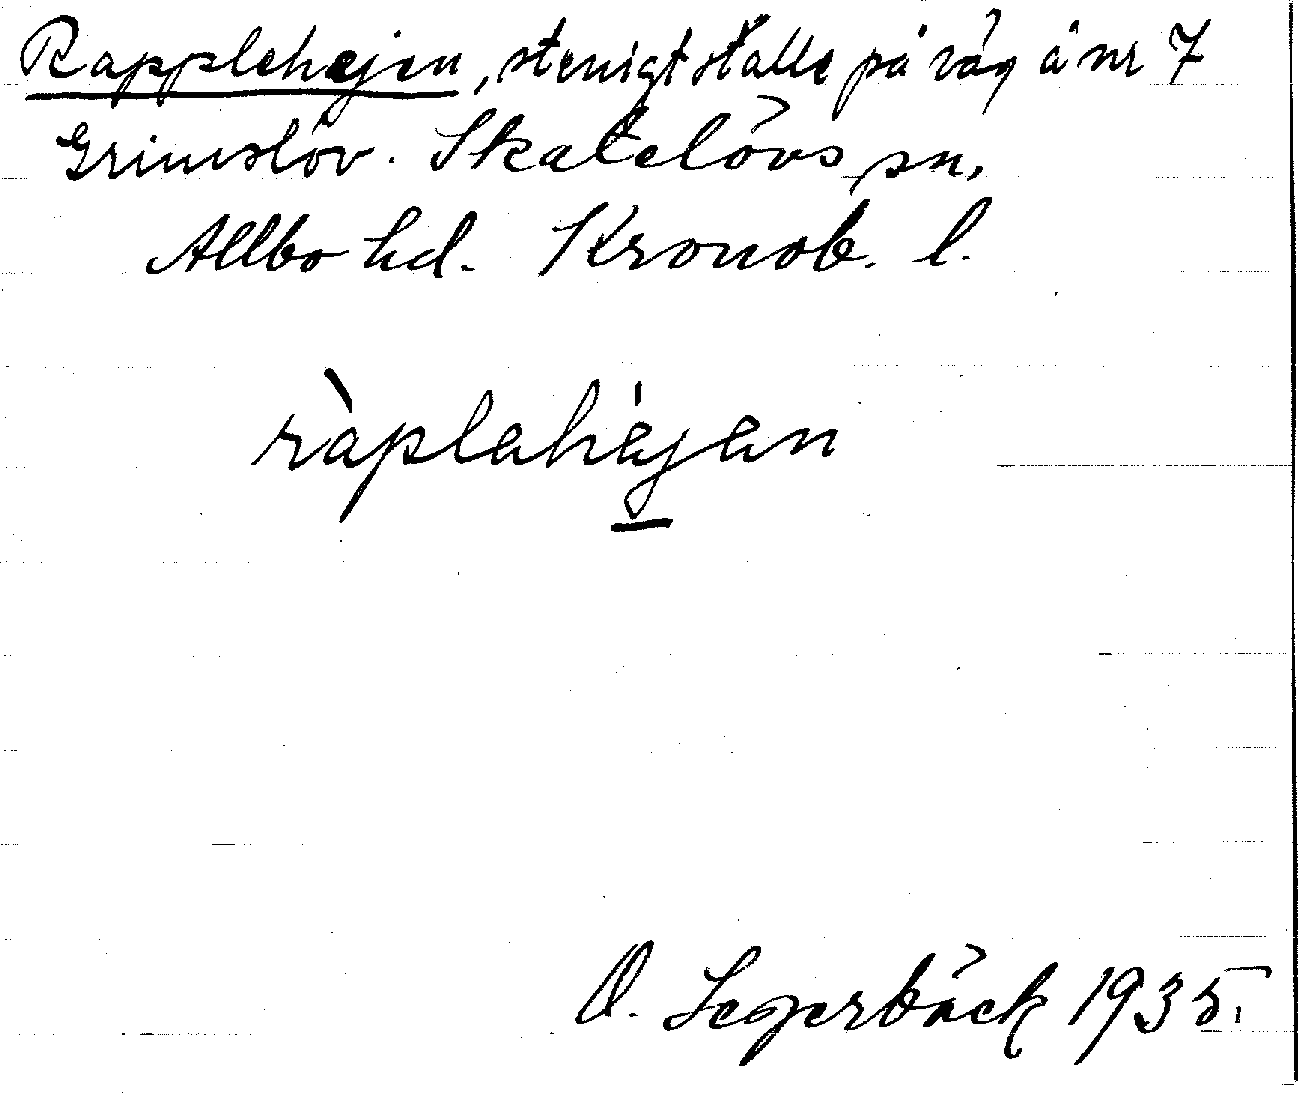 Rapplehejen, stenigt ställe på väg å nr 7
Grimslöv. Skatelövs sn,
Allbo hd. Kronob. l.
ràplahájan
O. Segerbäck 1935.